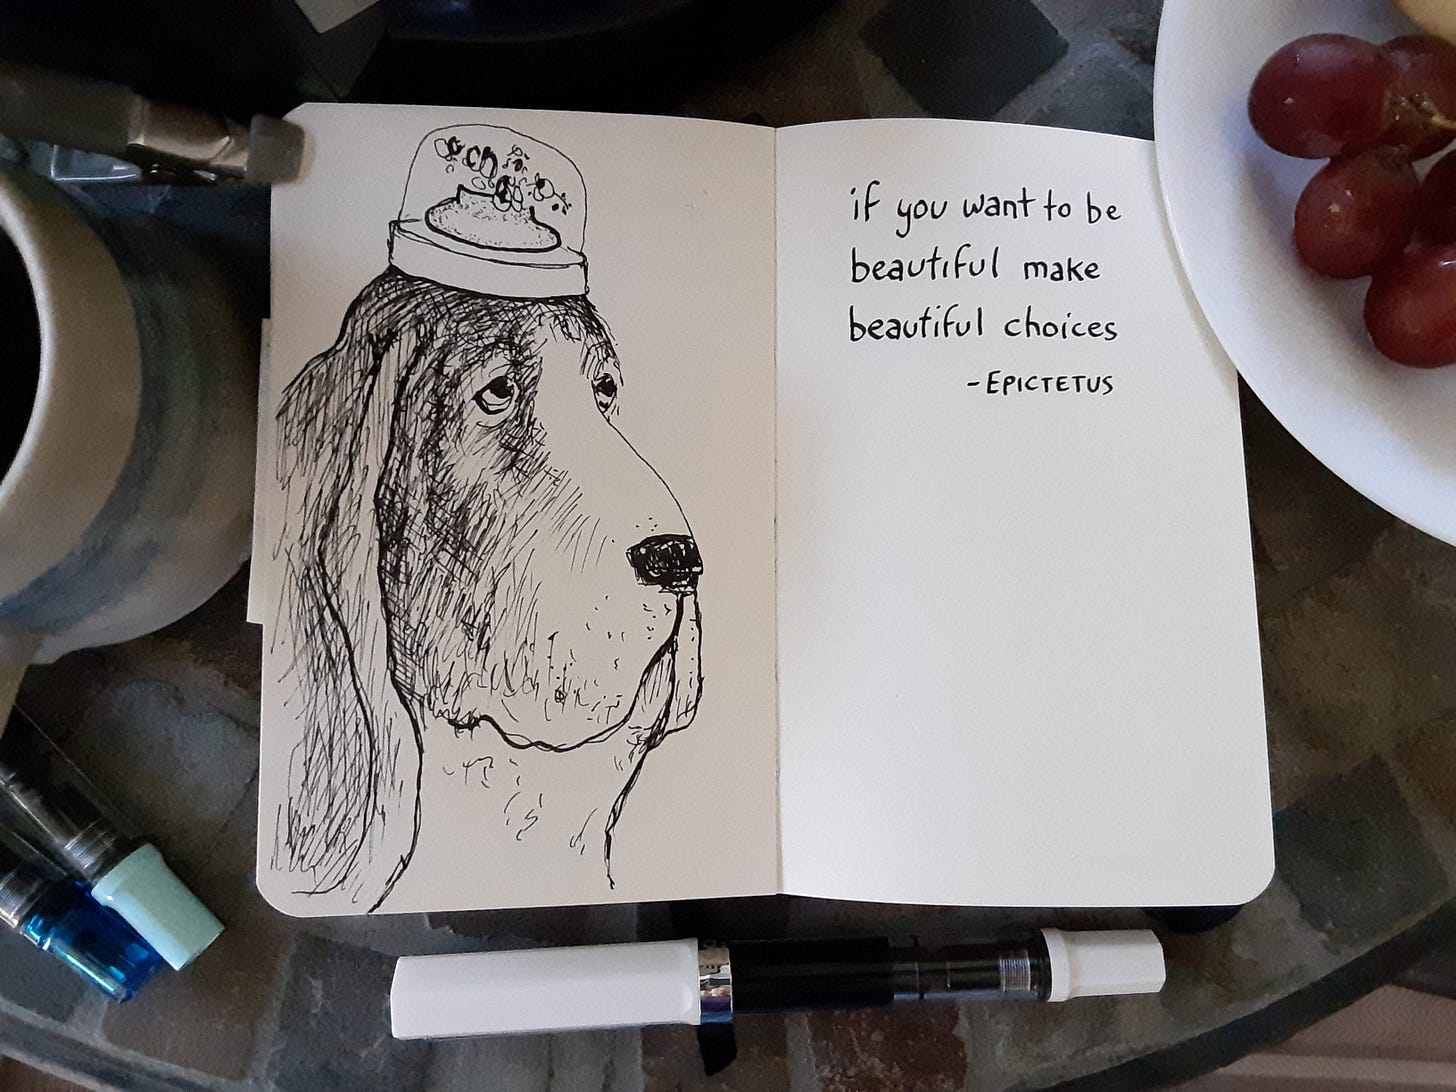 if you want to be
beautiful make
beautiful choices
-EPICTETUS